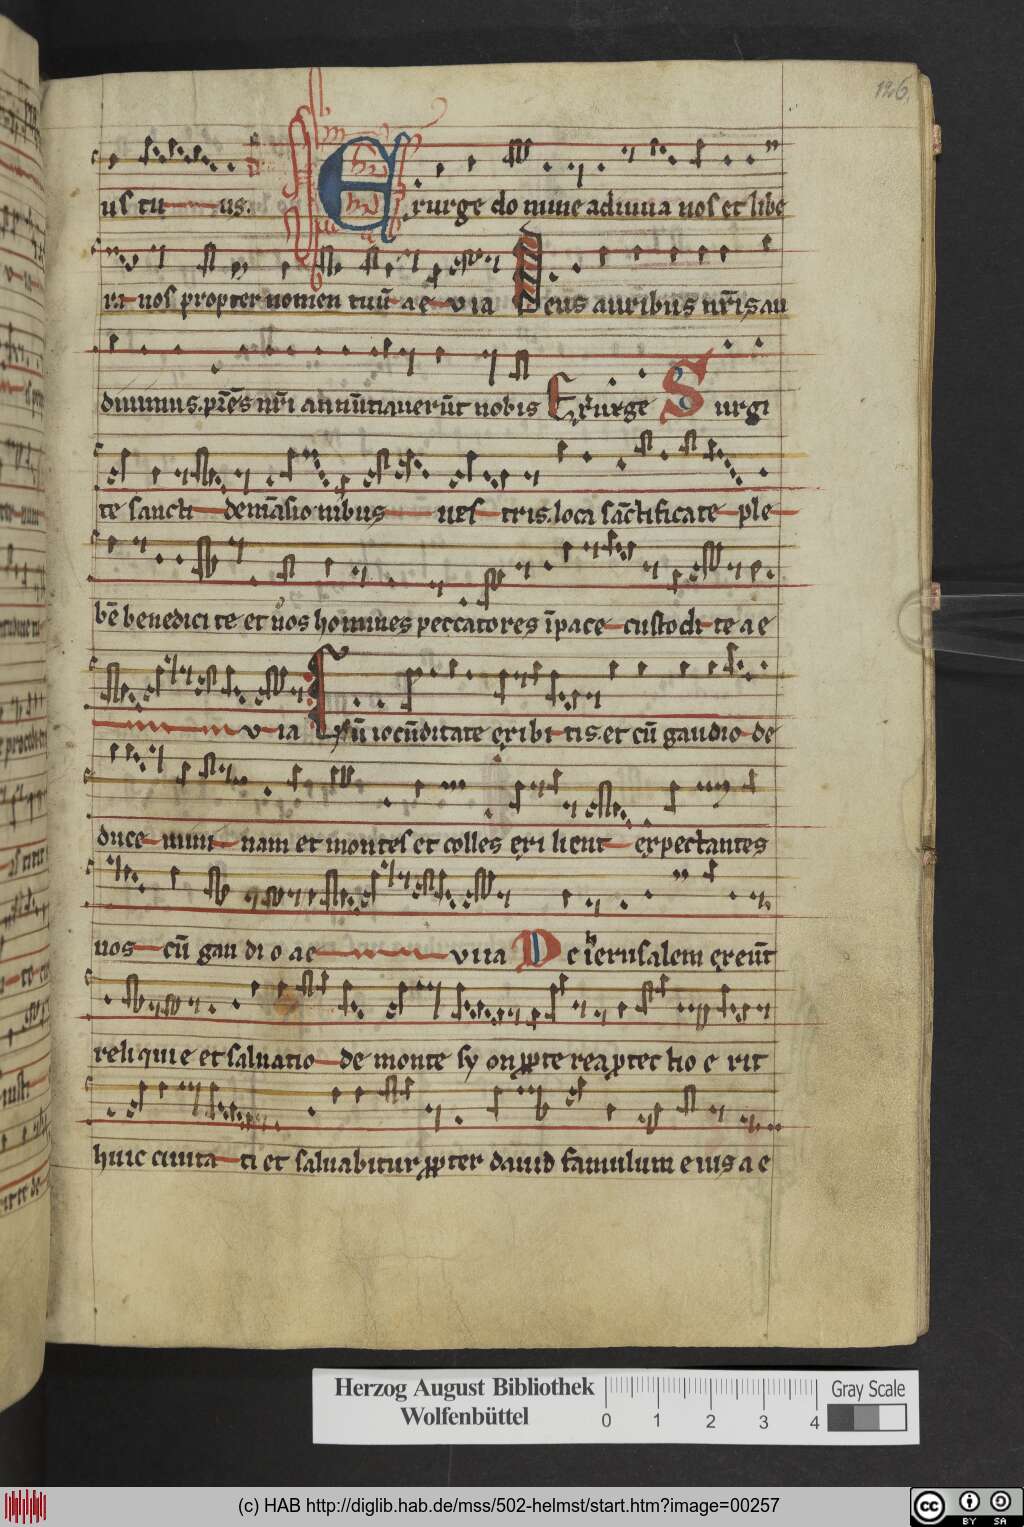 126.
us tu us.
Exurge domine adiuua nos et libe
ra nos propter nomen tuū a e v ia Deus auribus nr̄is au
diuimus. pr̄es nr̄i annūtiauerūt nobis Exurge Surgi
te sancti de māsionibus ues tris. loca sāctificate ple
bē benedicite et nos homines peccatores ī pace custodi te a e
v ia Cū iocūditate exibi tis. et cū gaudio de
duce mini nam et montes et colles exi lient expectantes
uos cū gau di o a e v iia De ierusalem exeūt
reliquie et saluatio de monte sy on ꝓpte rea ꝓtectio e rit
huic ciuita ti et saluabitur ꝓpter dauid famulum eius a e
Herzog August Bibliothek
Wolfenbüttel
0 1 2 3 4
Gray Scale
(c) HAB http://diglib.hab.de/mss/502-helmst/start.htm?image=00257
cc BY SA